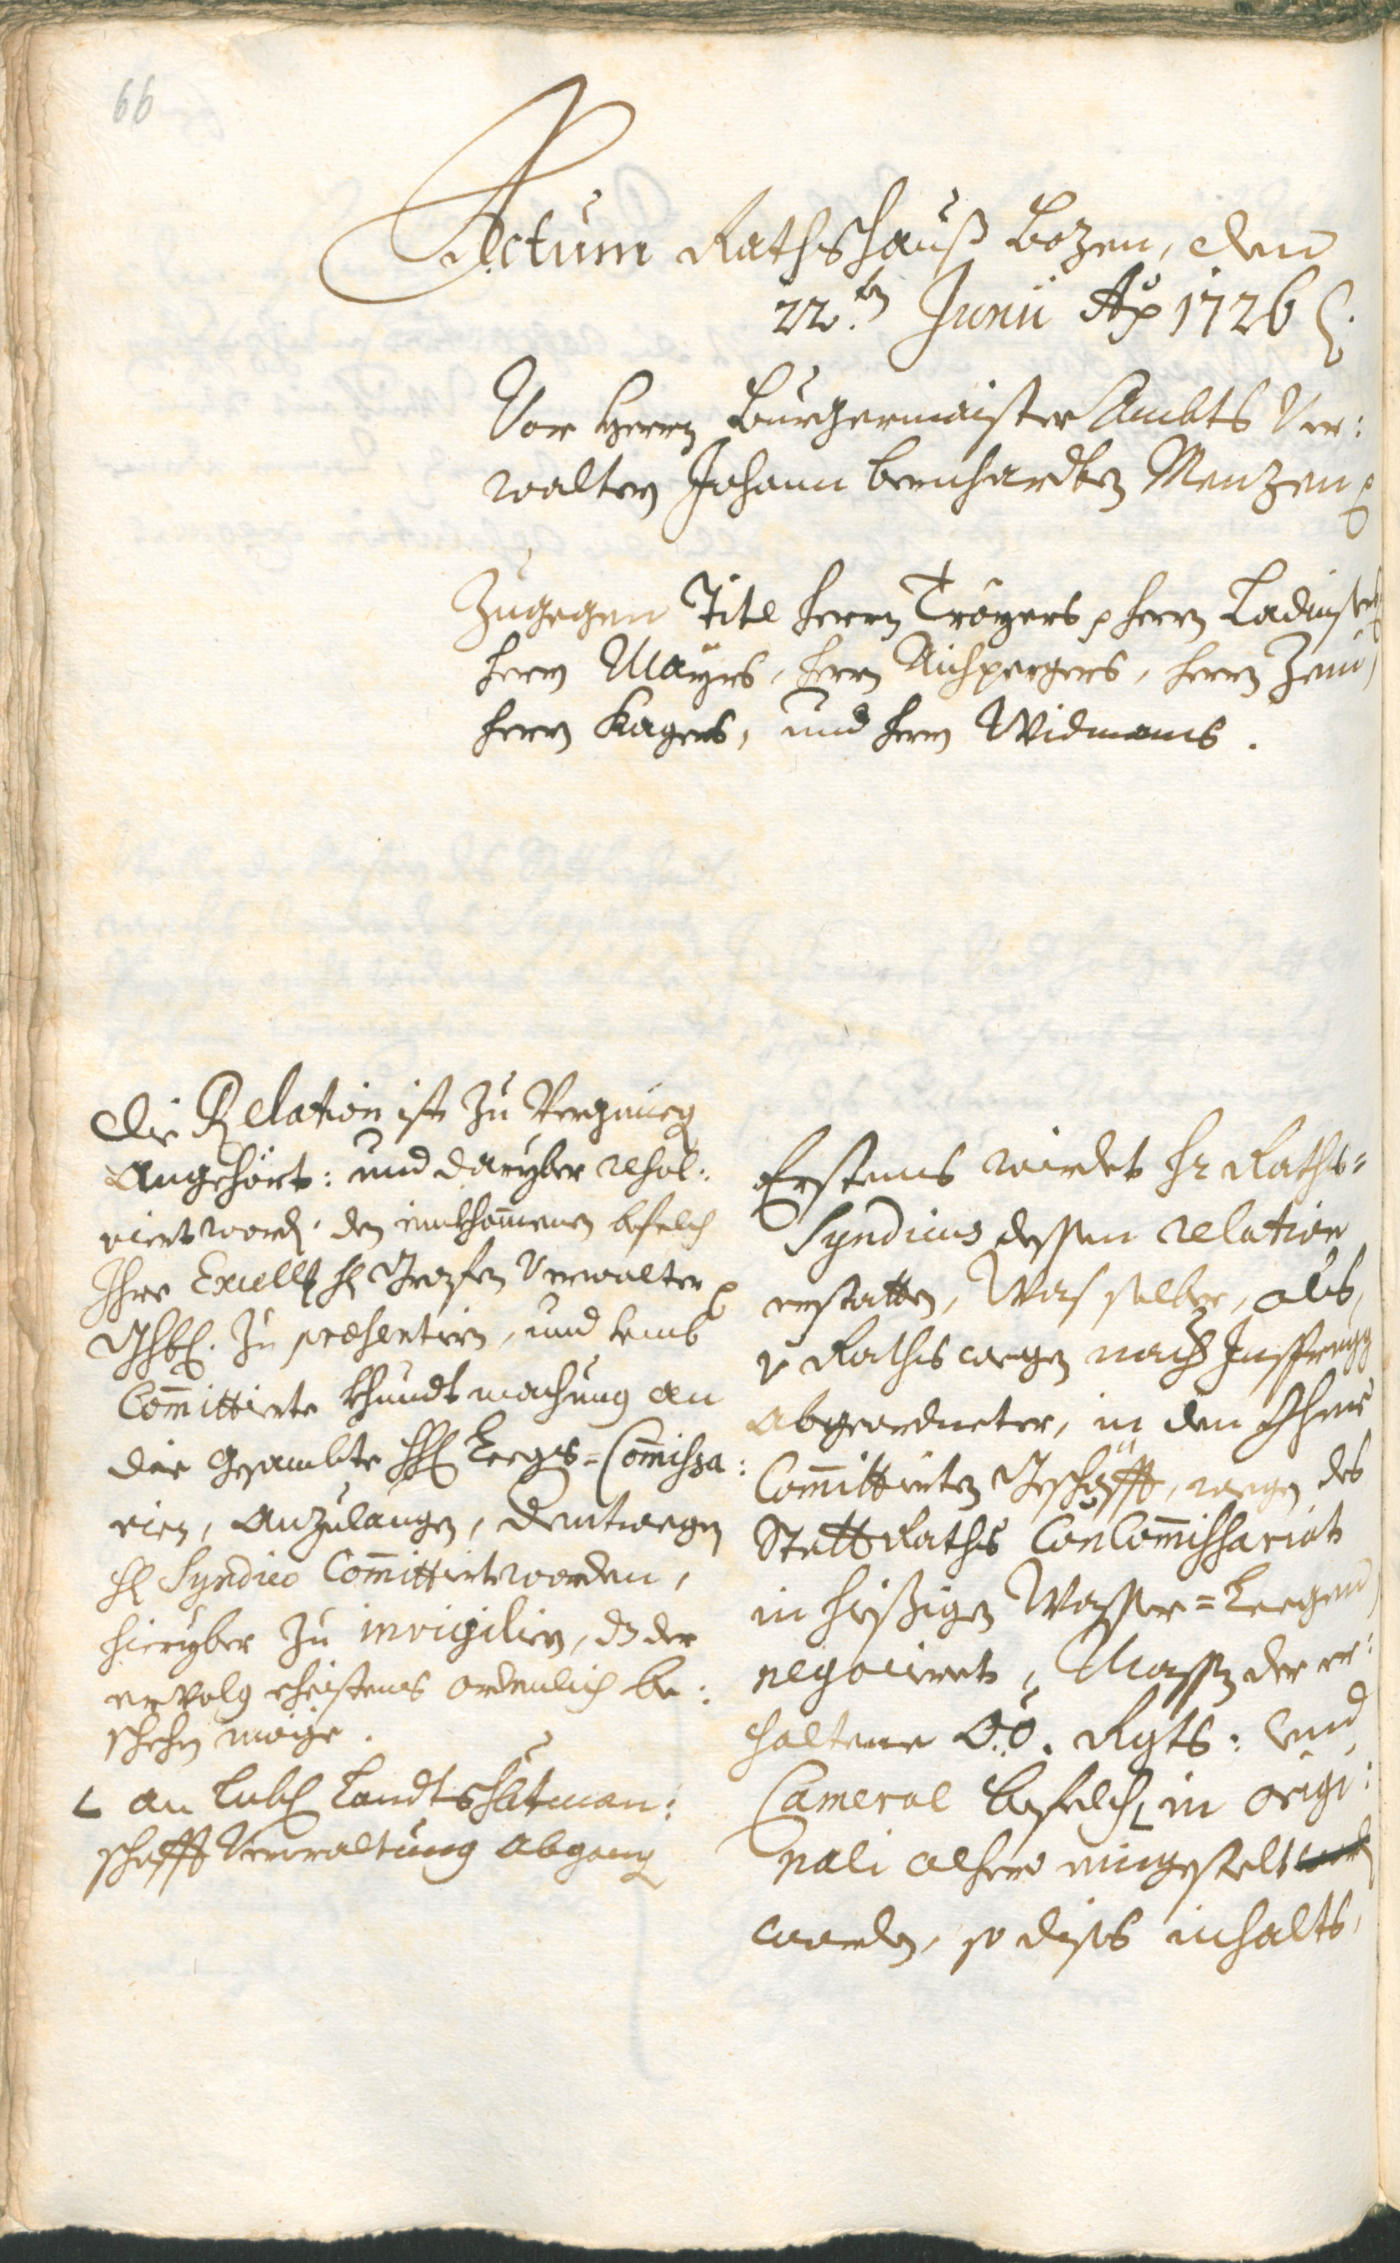 66
Actum Rathshauß Bozen, den
22.ten Junii Ao 1726
Vor Herrn Burgermaister Ambts Ver:
walter Johann Bernhardten Menzen
Zugegen Titl Herrn Tröyers, Herrn Ladinser
Herrn Mayrs, Herrn Aichpergers, Herrn
Herrn Kagers, und Herrn Widmans.
Die Relation ist zu
Angehört: und daryber resol:
viert word, den einkhommenen befelch
Ihro Excell. H Verwalter
zu præsentiern, und
Committirte khundtmachung an
die gesambte HH Leegs=Commissa:
rien, anzulangen, deentwegen
H Syndico Committirt worden,
hieryber zu invigiliern, dz der
ervolg ehistens ordenlich be:
schehen möge.
an Lobl Landtshaubtman:
schafft Verwaltung abgang
Erstens wirdet Hr Raths=
Syndicus dessen relation
erstatten, Was selber, als,
Raths wegen nach Insprugg
abgeordneter, in den Ihme
Committirten Geschäfft, wegen des
Statt Raths ConCommissariat
in hießigen Wasser=Leegen
negocieret, Massen der er:
haltene O:Ö. Rgts: und
Cameral befelch in origi:
nali alhero eingestelt
worden, so dises inhalts,